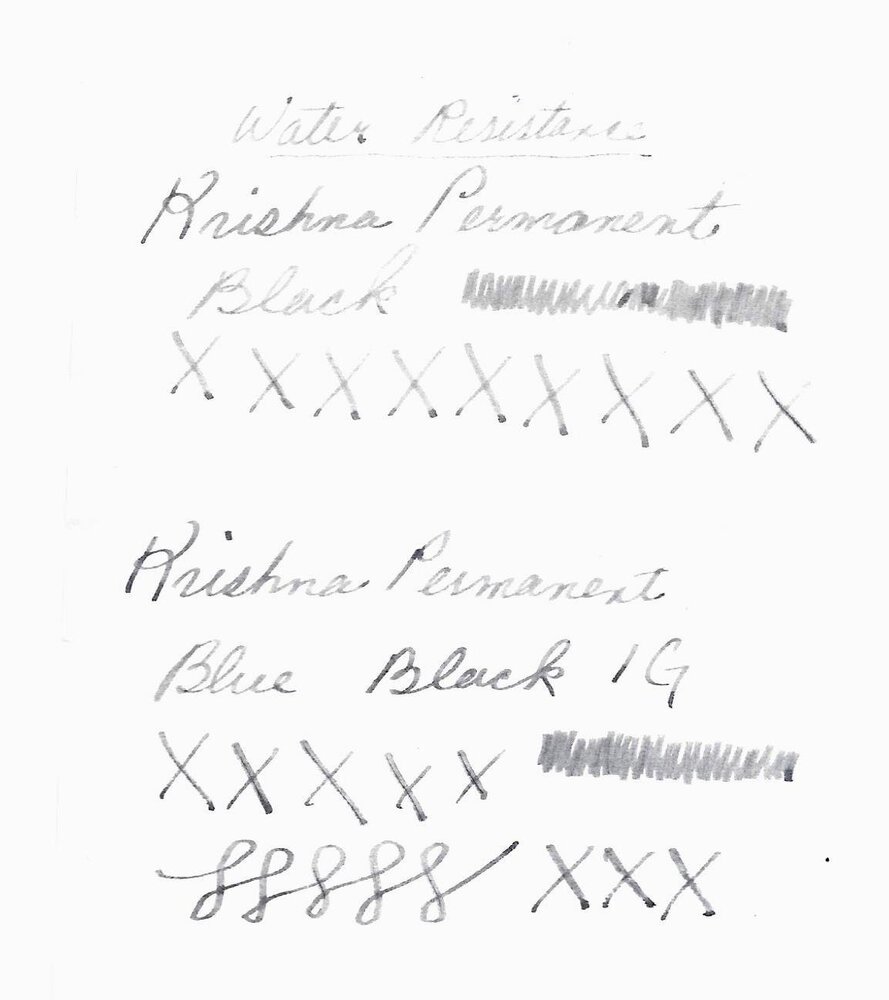 Water Resistance
Krishna Permanent
Black
X X X X X X X X X
Krishna Permanent
Blue Black IG
X X X X X
X X X